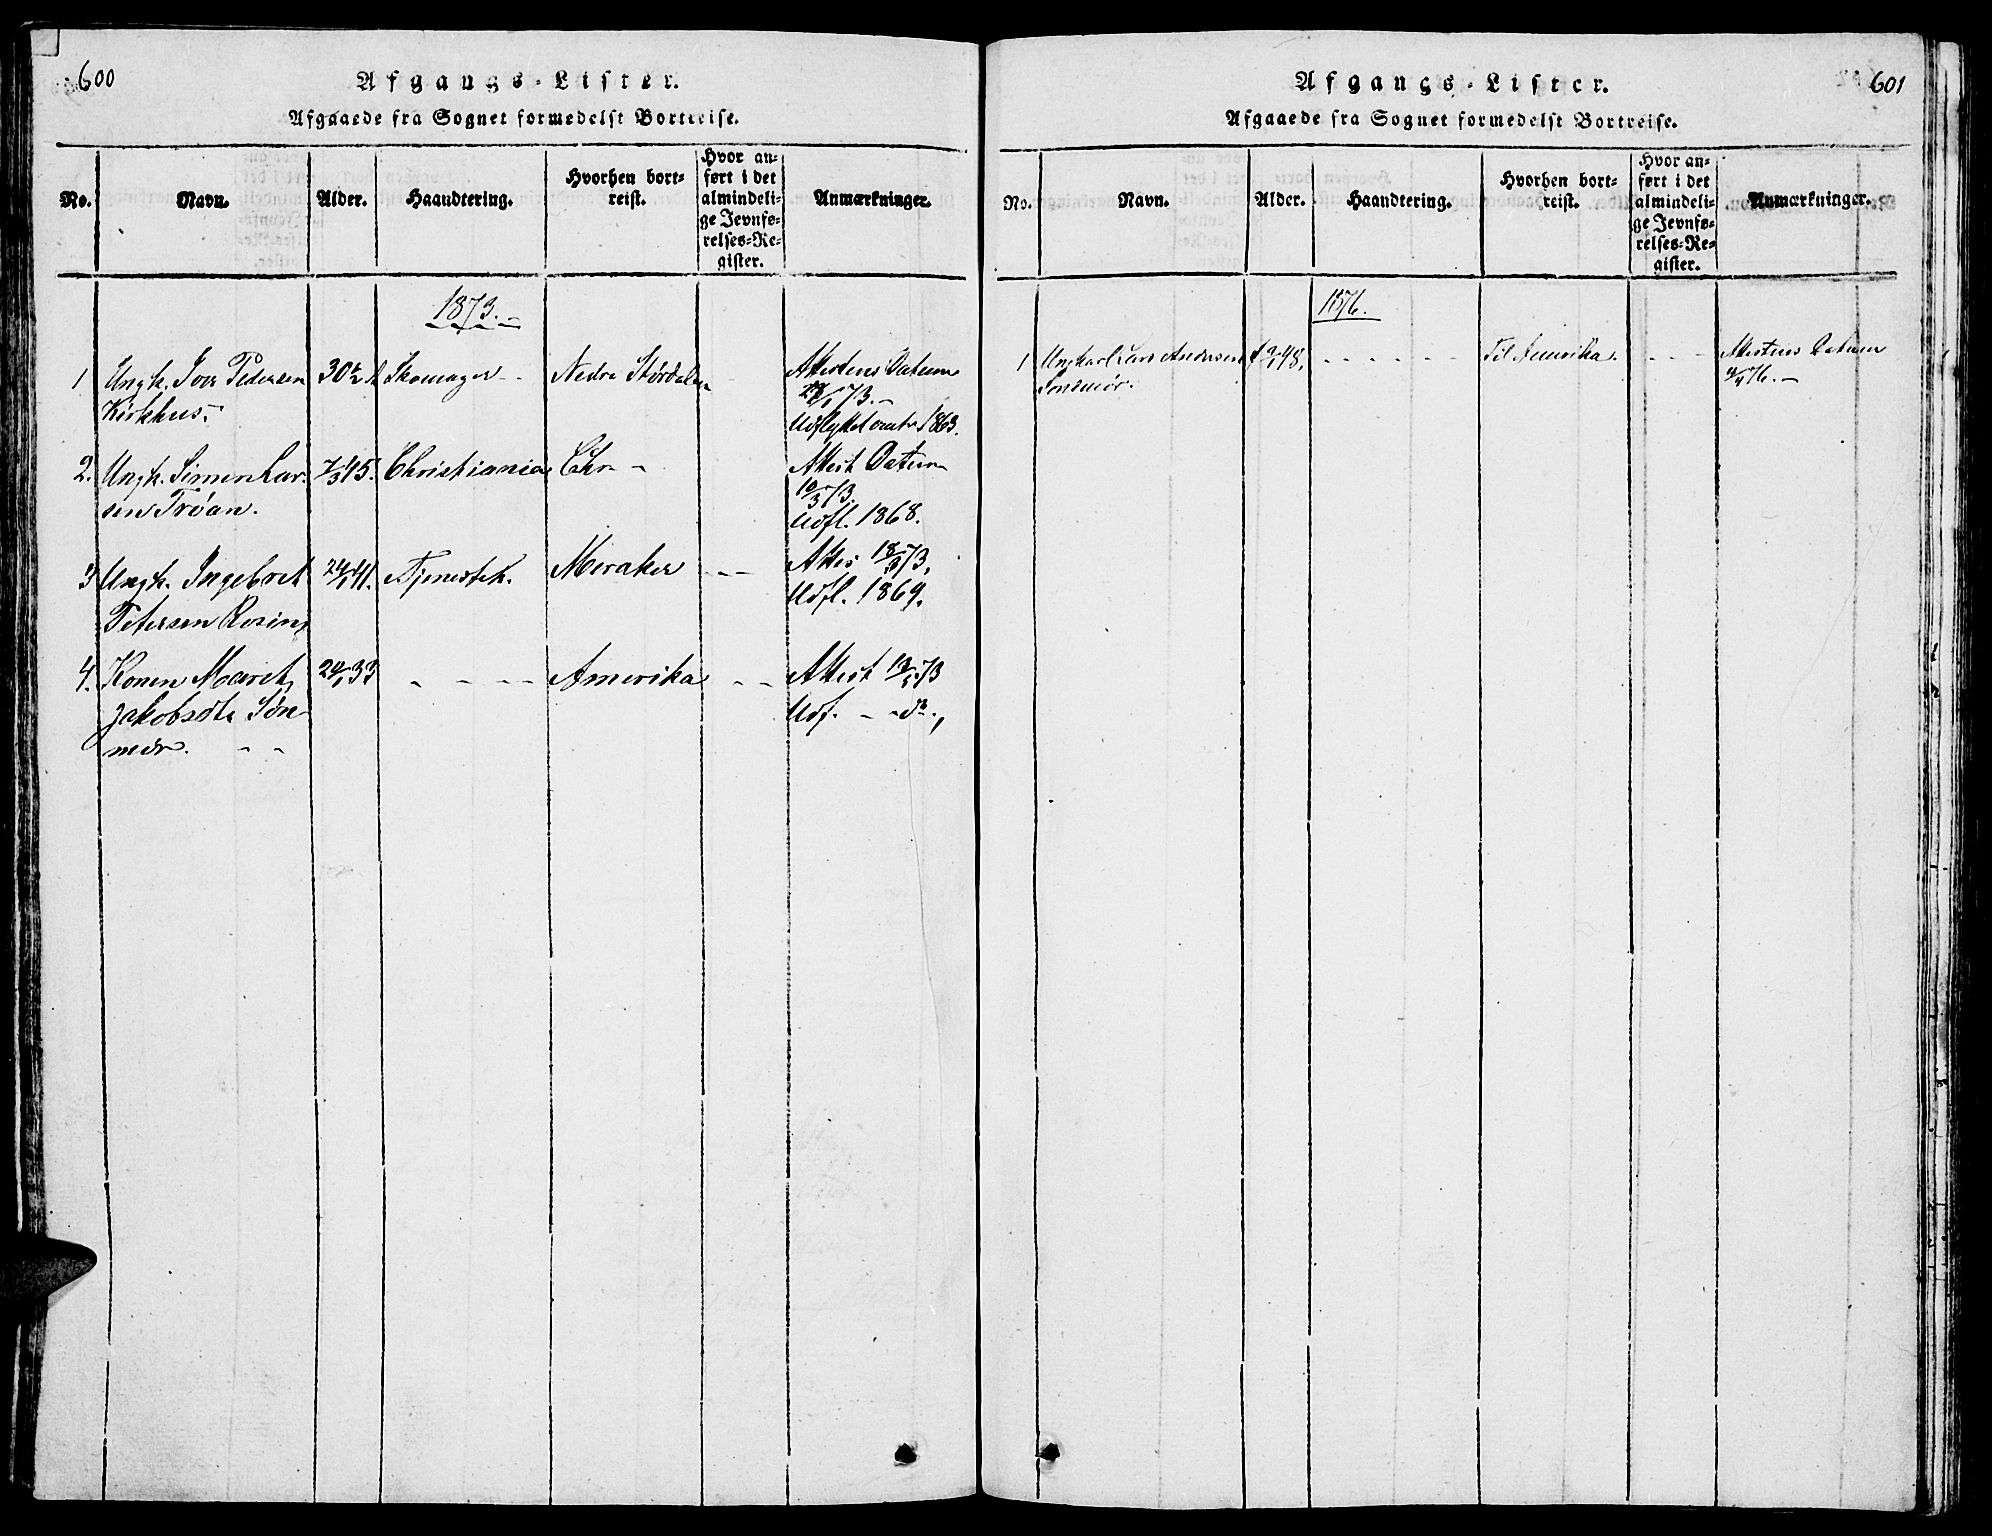 600
Afgangs-Lister.
Afgaaede fra Sognet formedelst Bortreise.
No.
Navn.
Alder.
Haandtering.
Hvorhen bort-
reist.
Hvor an-
ført i det
almindeli-
ge Jevnfø-
relses-Re-
gister.
Anmærkninger.
1873.
1 Ungk. Iver Pedersen 30 Skomager Nedre Størdalen Attestens Datum
Kirkhus. /73.
Udflyttet 1863.
2. Ungk. Simen Lar- 7/3 45. Christiania Chr Attest Datum
sen Trøan. 10/3 73.
Udfl. 1868.
3 Ungk. Ingebret 24/1 41. Tjenestek. Meraker Attes 18/3 73,
Petersen Udfl. 1869.
4. Konen Maret 24/1 33 Amerika Attest 13/5 73
Jakobsdtr Søn- Udf. - do.
mør.
601
Afgangs-Lister.
Afgaaede fra Sognet formedelst Bortreise.
No.
Navn.
Alder.
Haandtering.
Hvorhen bort-
reist.
Hvor an-
ført i det
almindeli-
ge Jevnfø-
relses-Re-
gister.
Anmærkninger.
1876.
1 Ungkarl Lars Andersen 48. Til Amerika. Attestens Datum
Sønmør. 76.